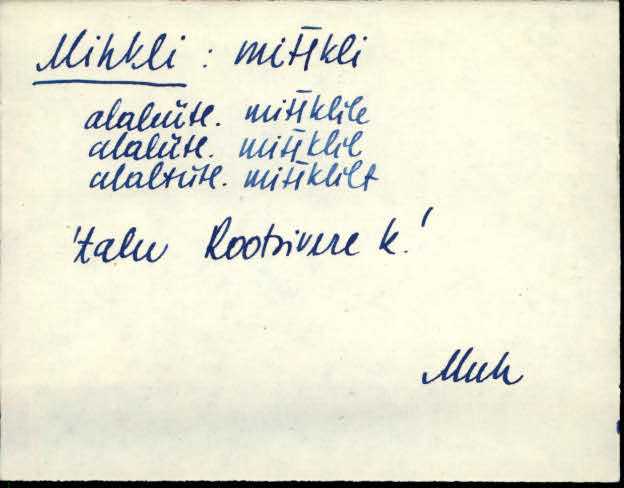 Mihkli : mihkli
alaleütl. mihklile
alalütl. mihklil
alaltütl. mihklilt
'talu Rootsivere k.'
Muh